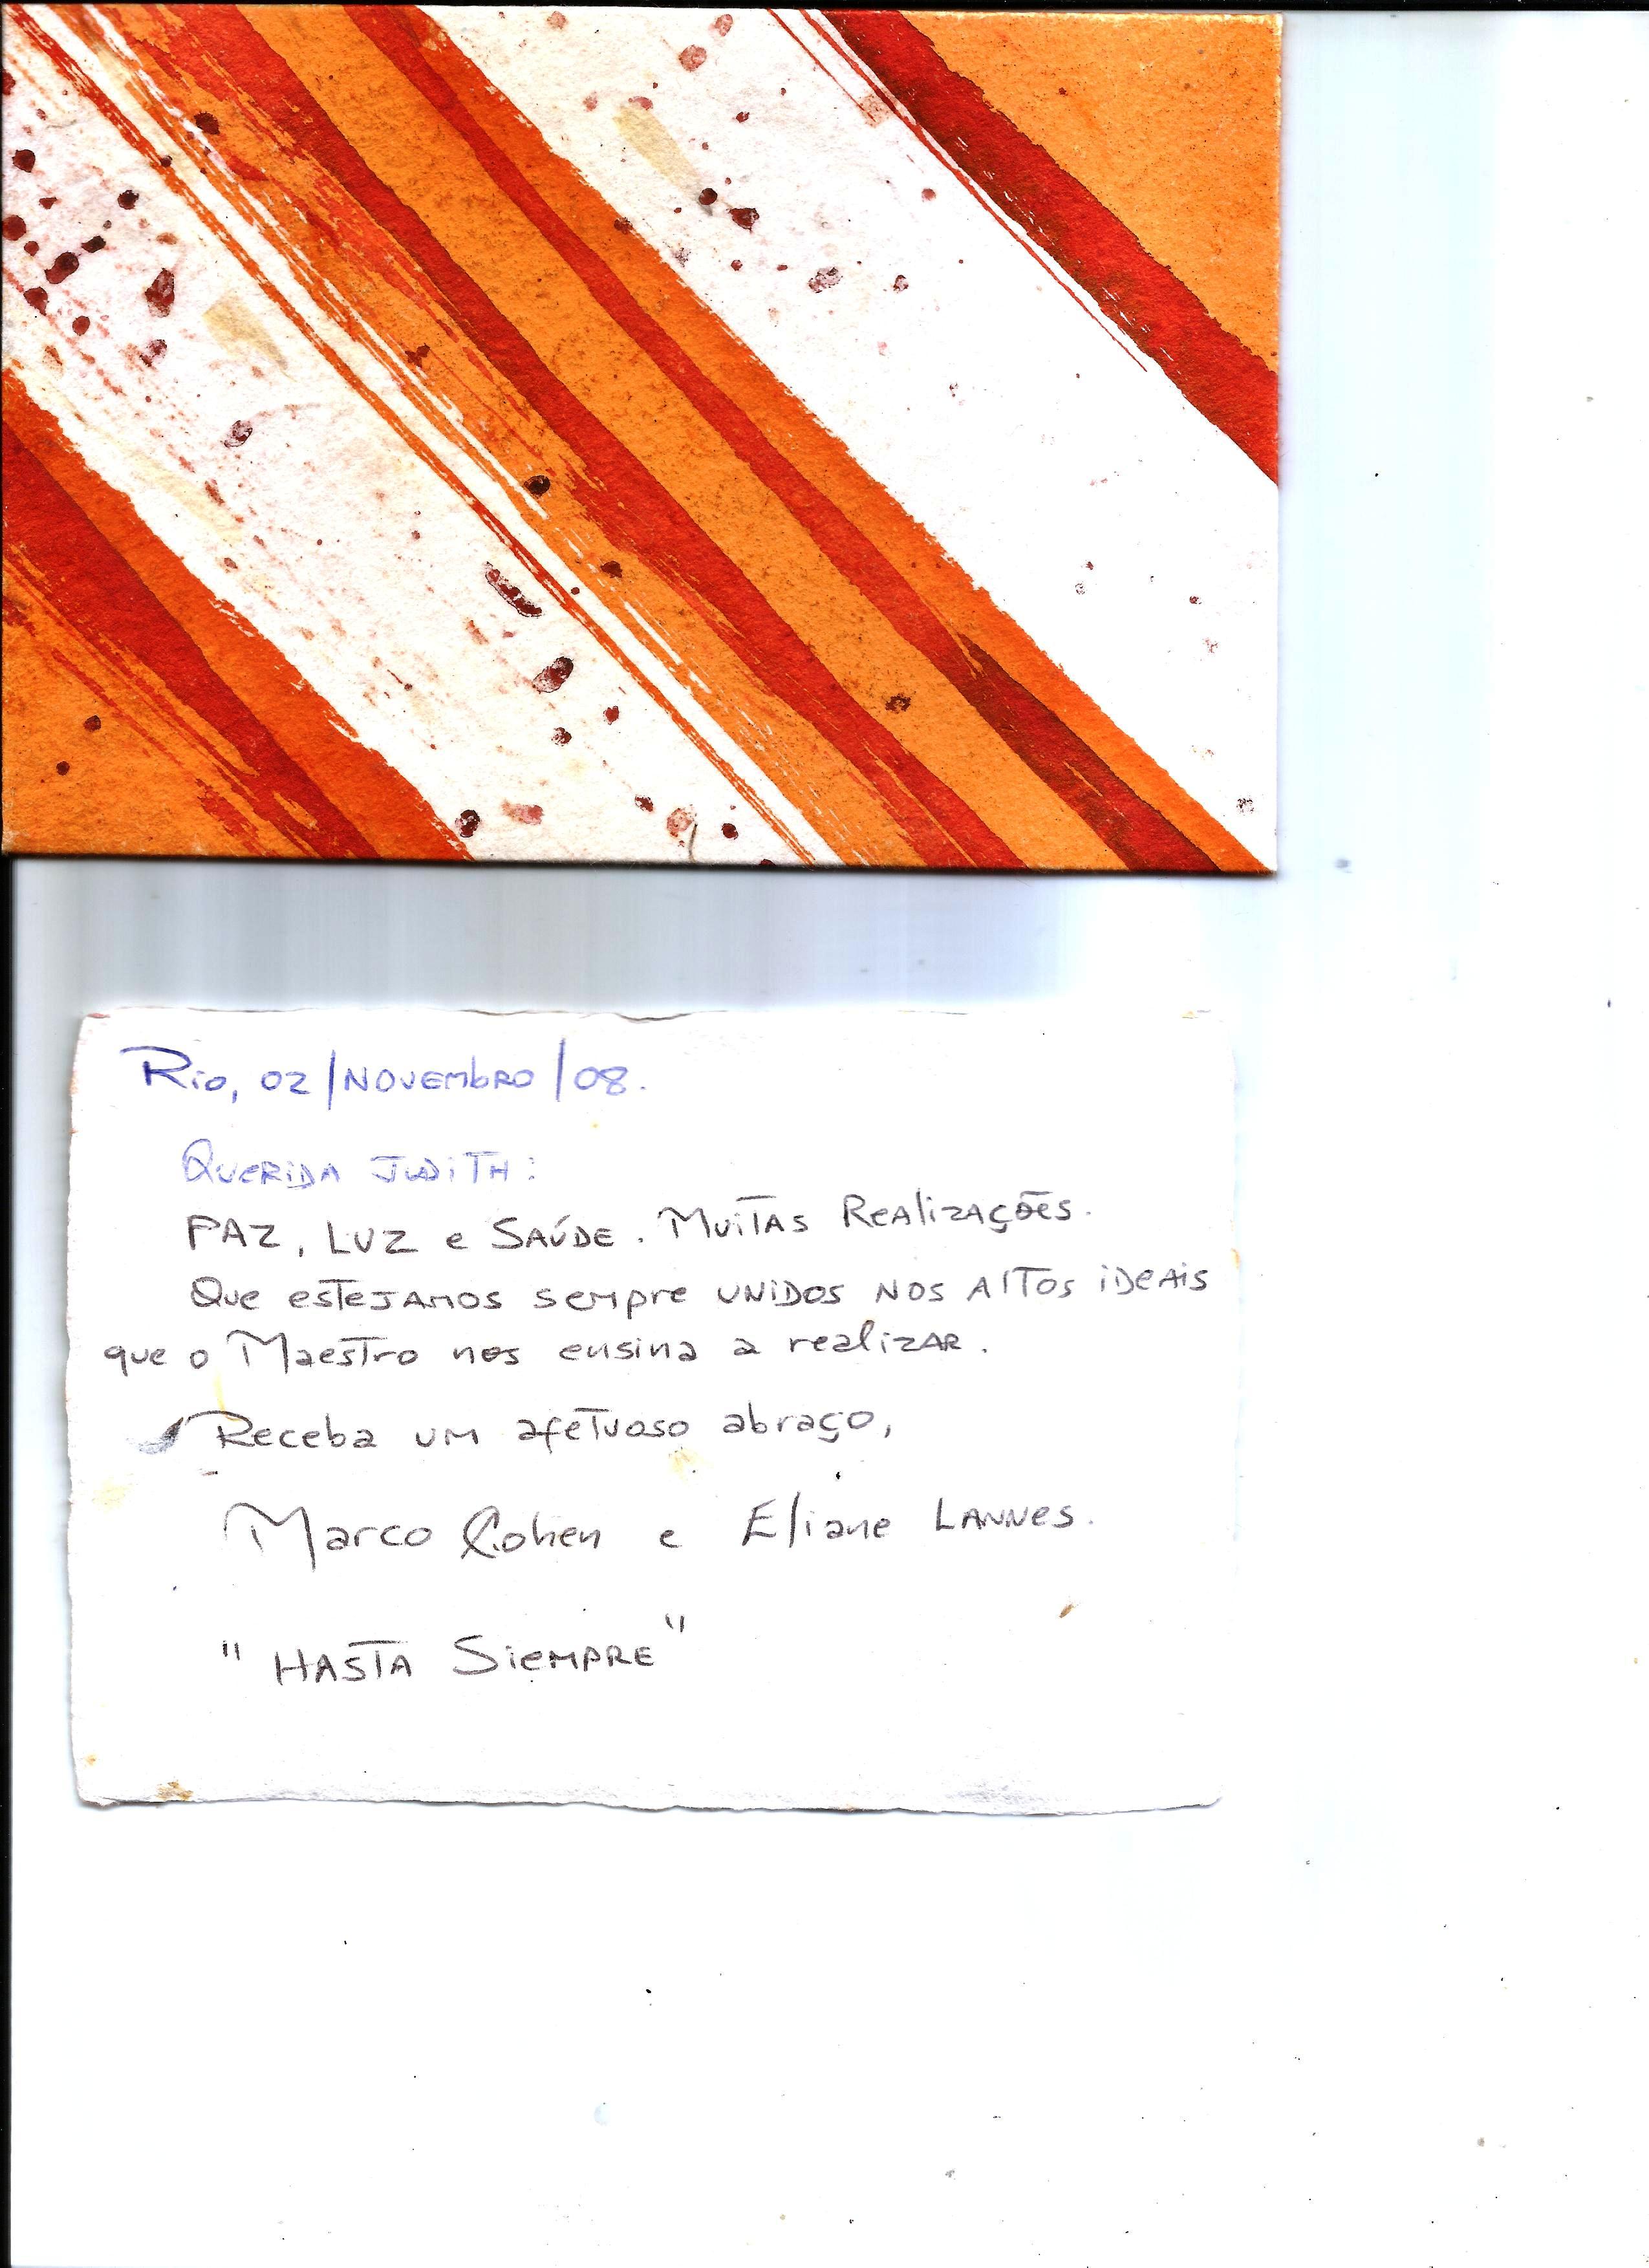 Rio, 02/NOVEMBRO/08.
QUERIDA JUDITH:
PAZ, LUZ e SAÚDE. MUITAS REALIZAÇÕES.
Que estejamos sempre UNIDOS NOS ALTOS IDEAIS
que o Maestro nos ensina a realizar.
Receba um afetuoso abraço,
Marco Cohen e Eliane LANNES.
"HASTA SIEMPRE"